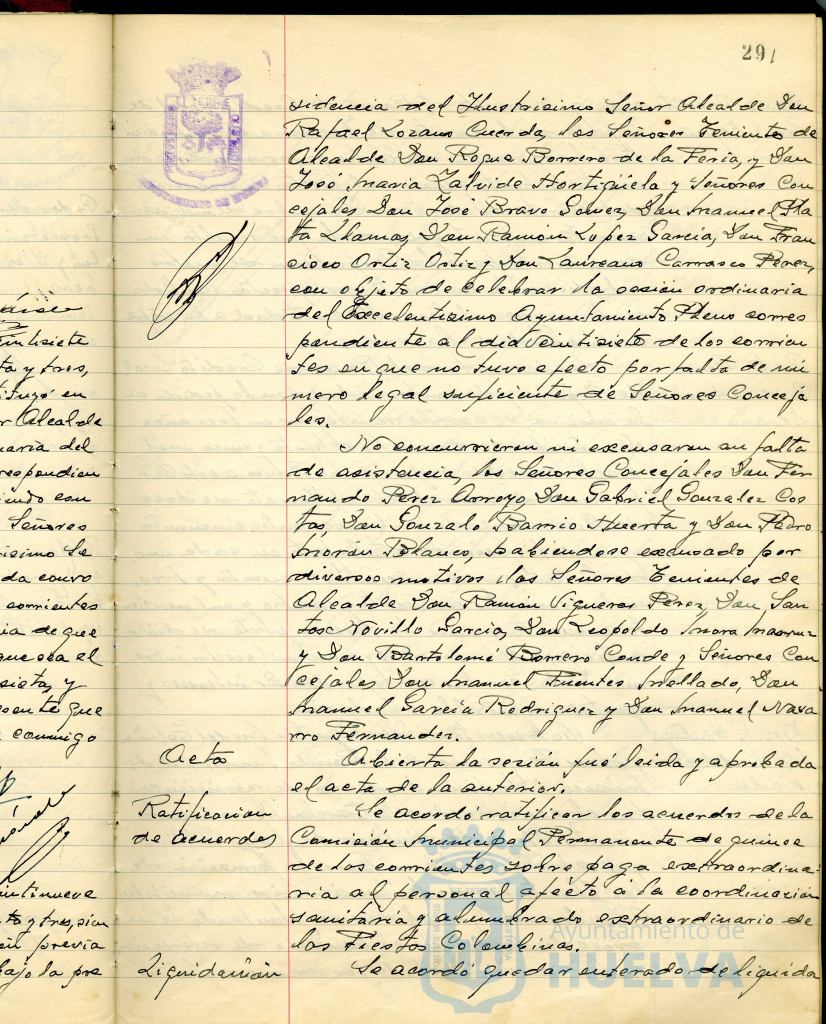 291
sidencia del Ilustrisimo Señor Alcalde Don
Rafael Lozano Cuerda, los Señores Teniente de
Alcalde Don Roque Borrero de la Feria, y Don
José Maria Zalvide Hortigüela y Señores Con
cejales Don José Bravo Gomez, Don Manuel Pla
ta Llamas, Don Ramón Lopez Garcia, Don Fran
cisco Ortiz Ortiz y Don Laureano Carrasco Perez,
con objeto de celebrar la sesión ordinaria
del Excelentisimo Ayuntamiento Pleno corres
pondiente al dia veintisiete de los corrien
tes en que no tuvo efecto por falta de nú
mero legal suficiente de Señores Conceja
les.
No concurrieron ni excusaron su falta
de asistencia, los Señores Concejales Don Fer
nando Perez Arroyo, Don Gabriel Gonzalez Cos
tas, Don Gonzalo Barrio Huerta y Don Pedro
Morán Blanco, habiendose excusado por
diversos motivos los Señores Tenientes de
Alcalde Don Ramón Vigueras Perez, Don San
tos Novillo Garcia, Don Leopoldo Mora
y Don Bartolomé Borrero Conde y Señores Con
cejales Don Manuel Fuentes Mellado, Don
Manuel Garcia Rodriguez y Don Manuel Nava
rro Fernandez.
Acta
Abierta la sesión fué leida y aprobada
el acta de la anterior.
Ratificacion
de acuerdos
Se acordó ratificar los acuerdos de la
Comisión Municipal Permanente de quince
de los corrientes sobre paga extraordina-
ria al personal afecto á la coordinación
sanitaria y alumbrado extraordinario de
las Fiestas Colombinas.
Liquidación
Se acordó quedar enterado de liquida
intisiete
ta y tres,
tituyó en
r Alcalde
naria del
respondien
iendo con
Señores
risimo Se
da convo
corrientes
ia de que
que sea el
sieta, y
sente que
e conmigo
intinueve
ta y tres, sien
en previa
bajo la pre
AYUNTAMIENTO DE HUELVA
Ayuntamiento de
HUELVA